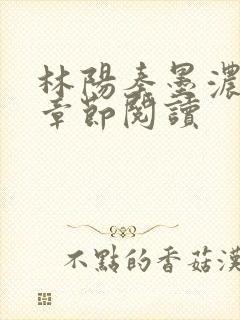 林陽秦墨濃
章節閱讀
不點的香菇漢